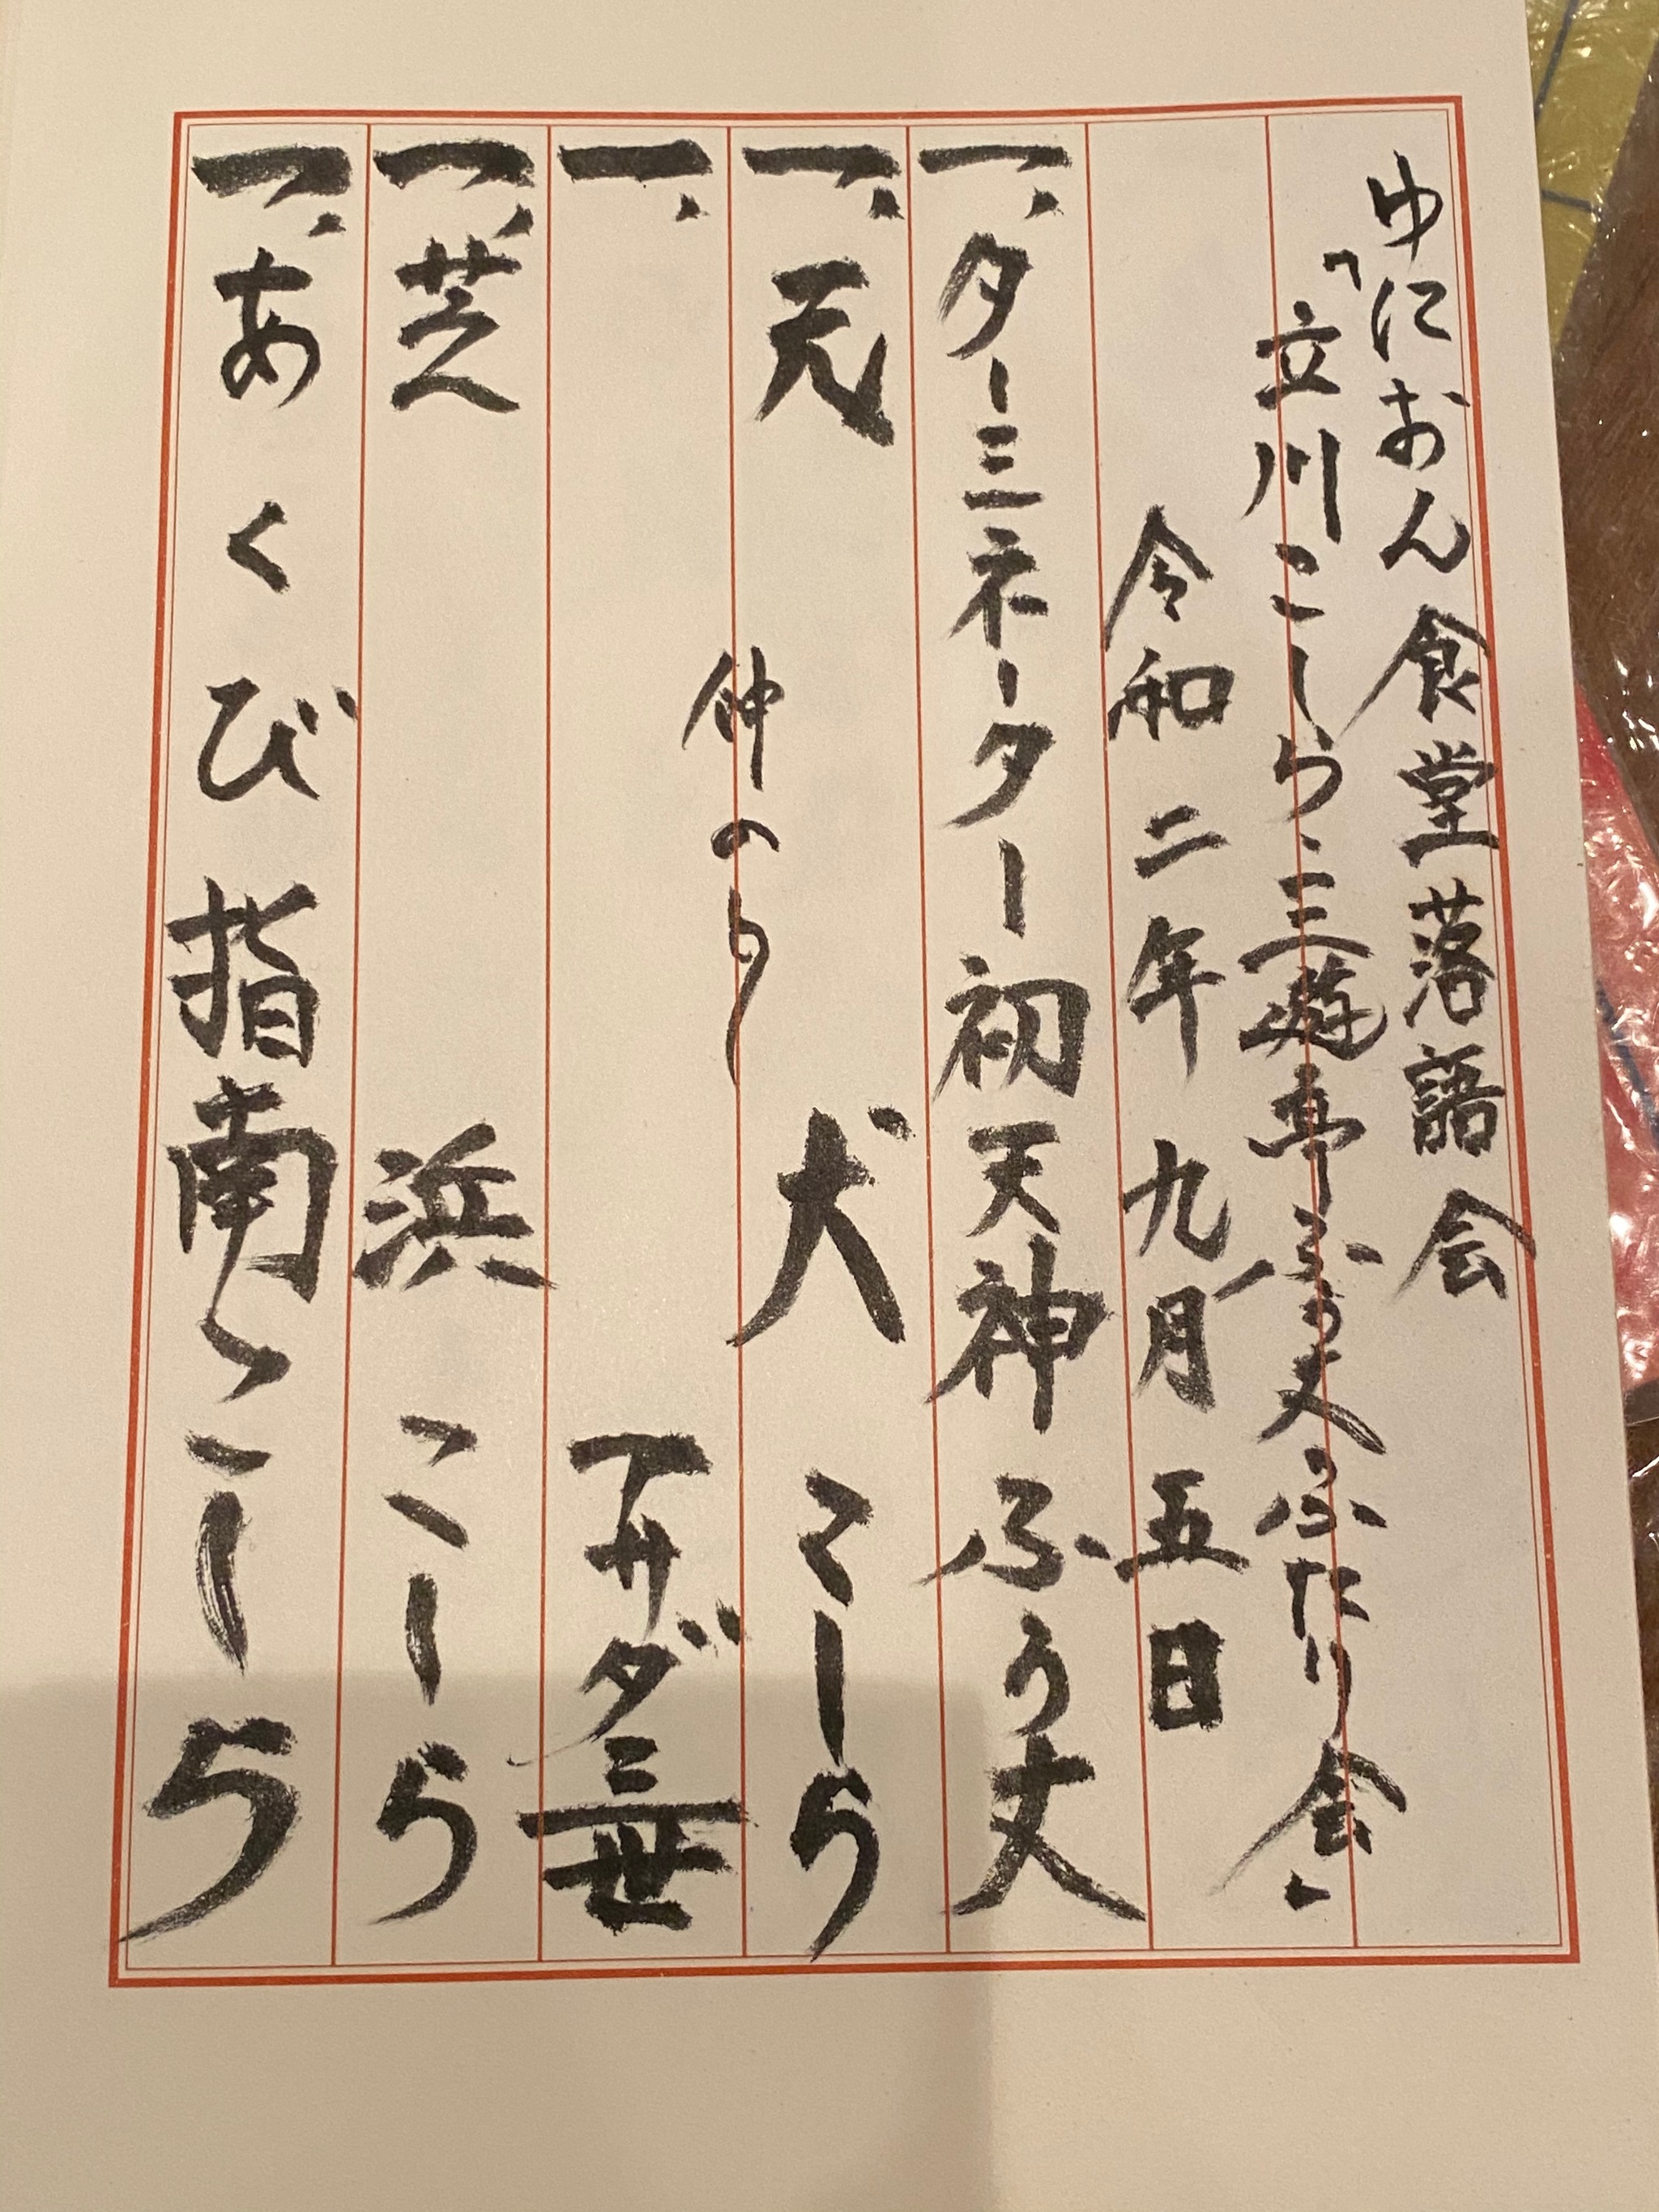 ゆにおん食堂落語会
「立川こしら・三遊亭ふう丈ふたり会」
令和二年九月五日
一、ターミネーター初天神 ふう丈
一、元犬 こしら
仲入り
一、 アサダ三世
一、芝浜 こしら
一、あくび指南 こしら